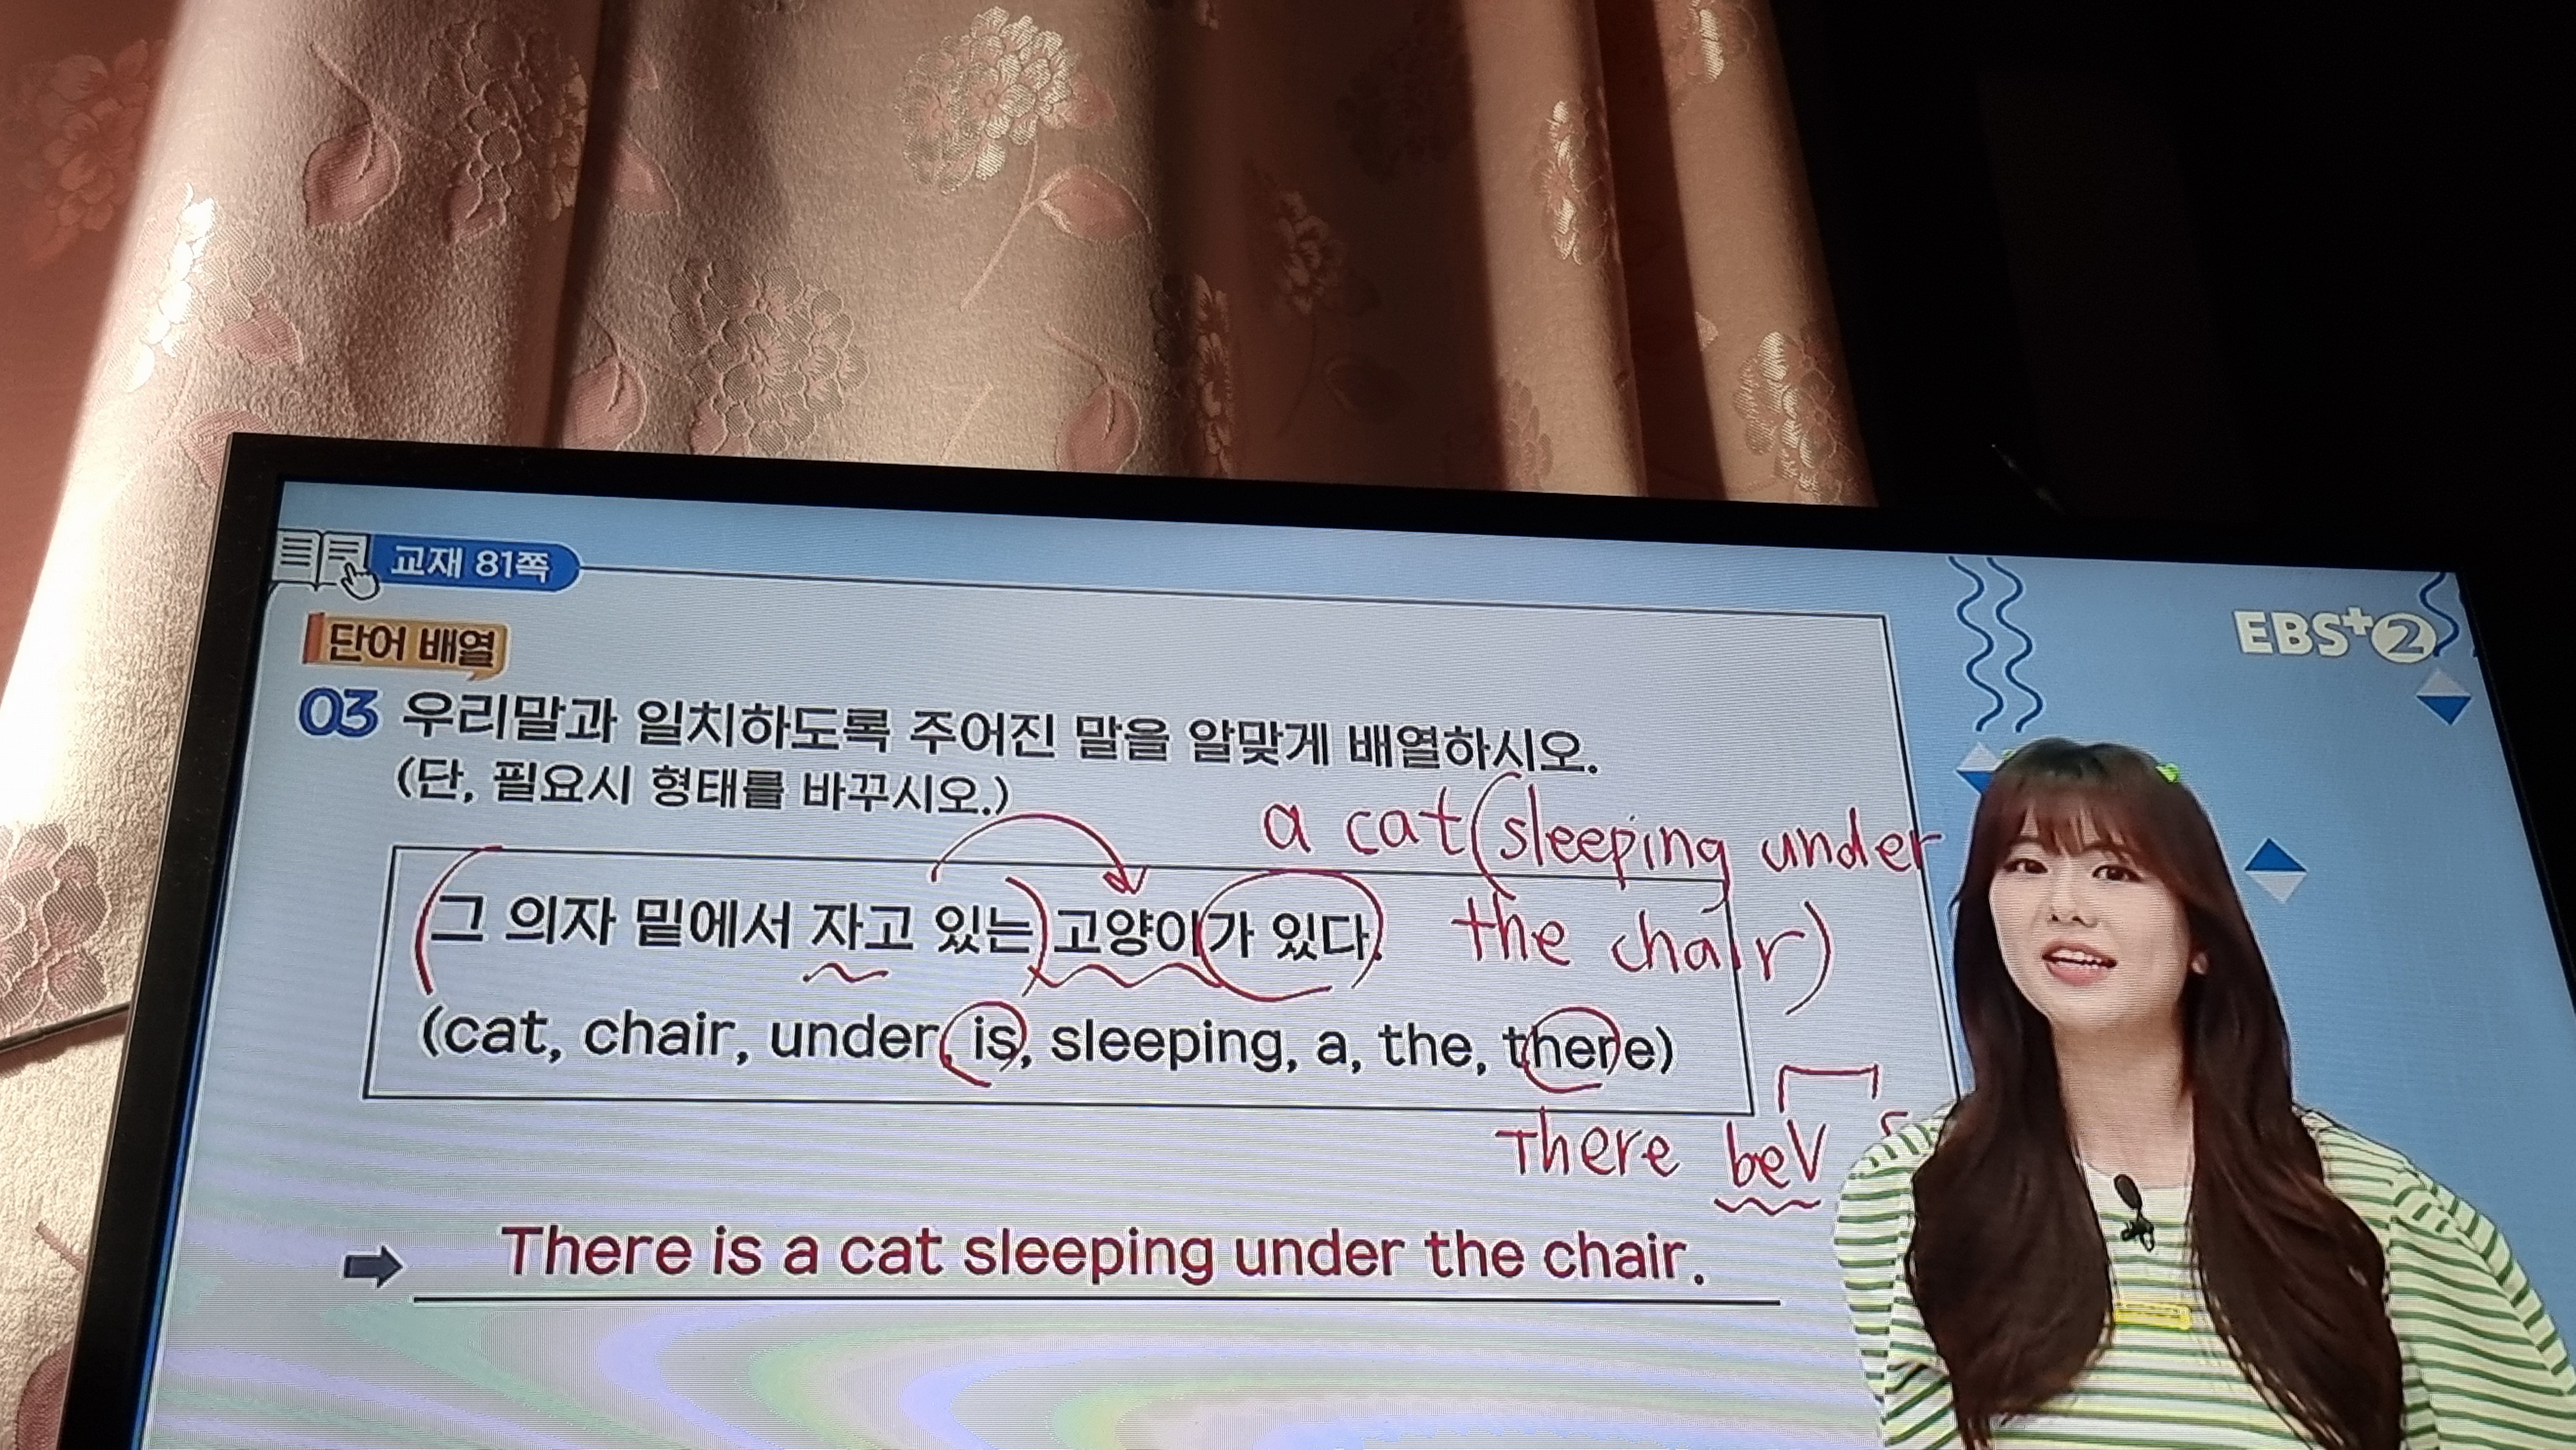 교재 81쪽
EBS+2
단어 배열
03 우리말과 일치하도록 주어진 말을 알맞게 배열하시오.
(단, 필요시 형태를 바꾸시오.)
a cat (sleeping under
the chair)
그 의자 밑에서 자고 있는 고양이가 있다.
(cat, chair, under, is, sleeping, a, the, there)
There beV
There is a cat sleeping under the chair.